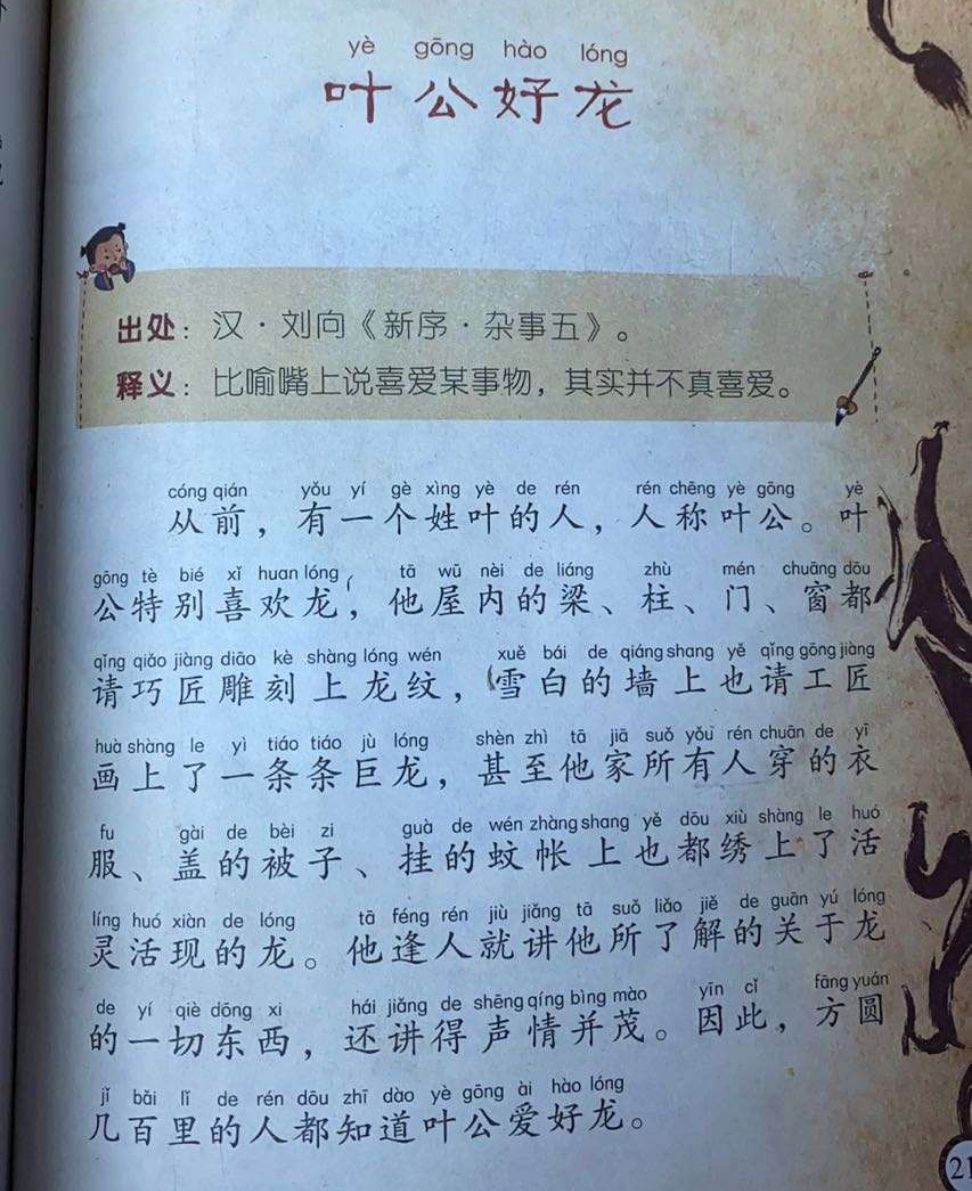 yè gōng hào lóng
叶公好龙
出处：汉·刘向《新序·杂事五》。
释义：比喻嘴上说喜爱某事物，其实并不真喜爱。
cóng qián yǒu yí gè xìng yè de rén rén chēng yè gōng yè
从前，有一个姓叶的人，人称叶公。叶
gōng tè bié xǐ huan lóng tā wū nèi de liáng zhù mén chuāng dōu
公特别喜欢龙，他屋内的梁、柱、门、窗都
qǐng qiǎo jiàng diāo kè shàng lóng wén xuě bái de qiáng shang yě qǐng gōng jiàng
请巧匠雕刻上龙纹，雪白的墙上也请工匠
huà shàng le yì tiáo tiáo jù lóng shèn zhì tā jiā suǒ yǒu rén chuān de yī
画上了一条条巨龙，甚至他家所有人穿的衣
fu gài de bèi zi guà de wén zhàng shang yě dōu xiù shàng le huó
服、盖的被子、挂的蚊帐上也都绣上了活
líng huó xiàn de lóng tā féng rén jiù jiǎng tā suǒ liǎo jiě de guān yú lóng
灵活现的龙。他逢人就讲他所了解的关于龙
de yí qiè dōng xi hái jiǎng de shēng qíng bìng mào yīn cǐ fāng yuán
的一切东西，还讲得声情并茂。因此，方圆
jǐ bǎi lǐ de rén dōu zhī dào yè gōng ài hào lóng
几百里的人都知道叶公爱好龙。
21